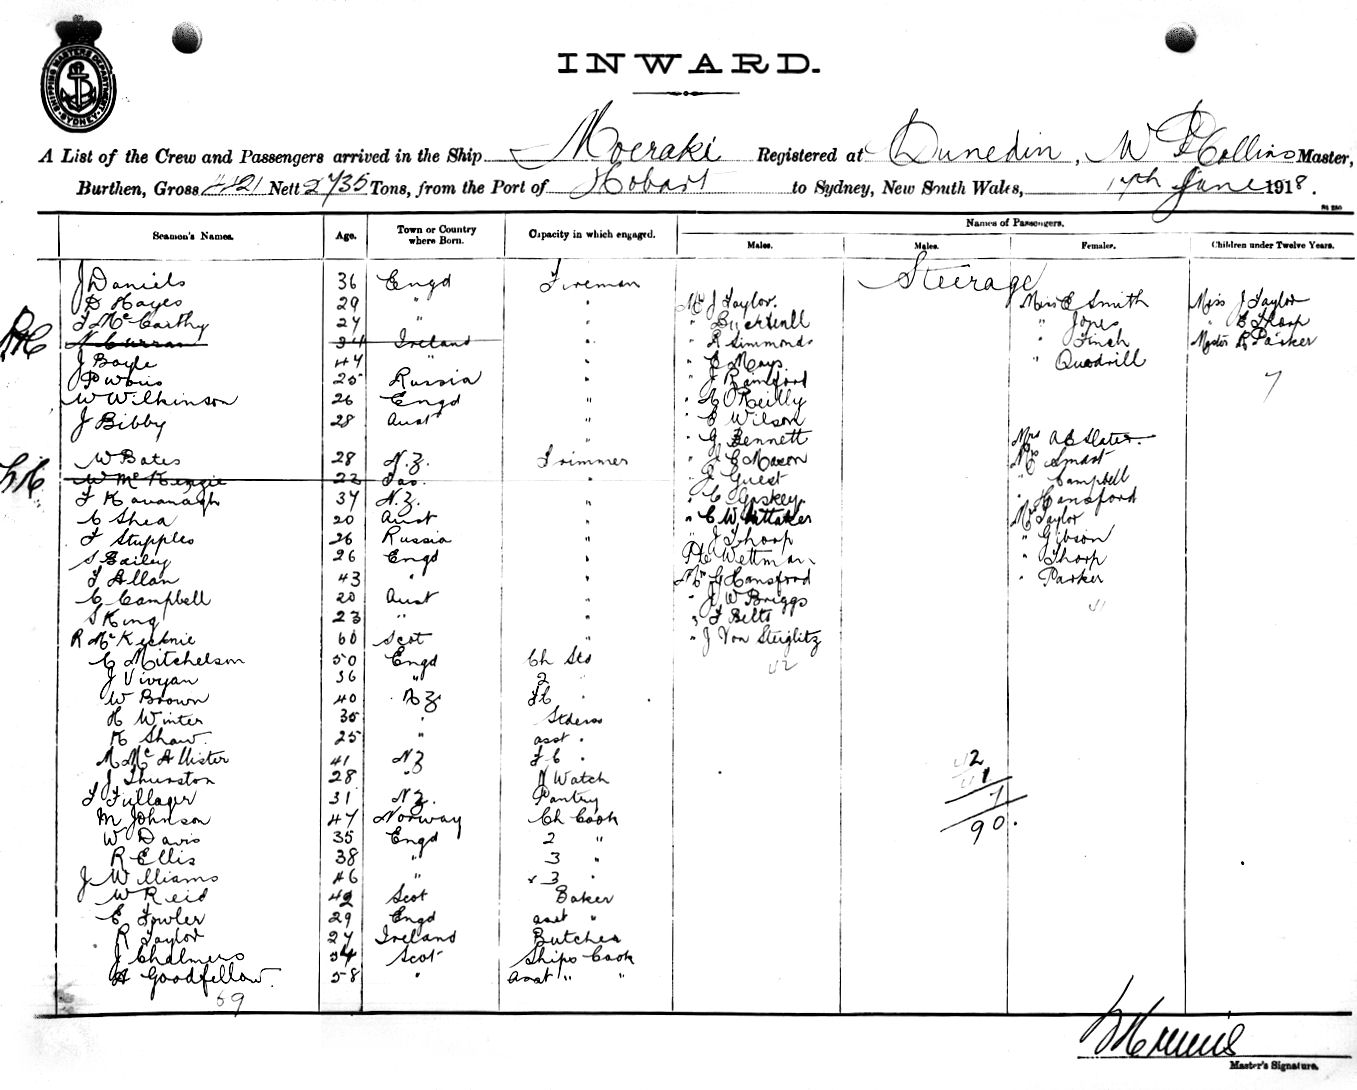 SHIPPING MASTERS DEPARTMENT SYDNEY
INWARD.
A List of the Crew and Passengers arrived in the Ship Moeraki Registered at Dunedin, W D Collins Master,
Burthen, Gross 4421 Nett 2735 Tons, from the Port of Hobart to Sydney, New South Wales, 17th June 1918.
Names of Passengers.
Seamen's Names. Age. Town or Country where Born. Capacity in which engaged. Males. Males. Females. Children under Twelve Years.
Steerage
J Daniels 36 Engd Fireman
D Hayes 29 " " Mr J Taylor. Miss E Smith Miss J Taylor
T McCarthy 27 " " " " Jones " E Thorp
N Curran 34 Ireland " " R Simmonds " Finch Master R Parker
J Boyle 47 " " " E Mays " Quodrill
25 Russia " " J Ransford 7
W Wilkinson 26 Engd " " O'Reilly
J Bibby 28 Aust " " E Wilson
" " G Bennett Mrs A E Slater
W Bates 28 N.Z. Trimmer " J C Macon " Smart
W McKenzie 22 Tas. " " J Guest " Campbell
F Kavanagh 37 N.Z. " " C Gaskey " Hansford
C Shea 20 Aust " " C Whittaker Mrs Taylor
F Stupples 26 Russia " " J Thorp " Gibson
S Bailey 26 Engd " Wettman " Thorp
F Allan 43 " " Mr G Hansford " Parker
C Campbell 20 Aust " " J W Briggs 41
S King 23 " " " F Betts
R McKechnie 60 Scot " " J Von Steiglitz
C Mitchelson 50 Engd Ch Std 42
J Vivyan 36 " 2 "
W Brown 40 N.Z. F C "
H Winter 35 " Stdess
K Shaw. 25 " asst "
M McAllister 41 NZ F C " 42
J Thurston 28 " N Watch 41
F Fullager 31 N.Z. Pantry 7
M Johnson 47 Norway Ch Cook 90.
W Davis 35 Engd 2 "
R Ellis 38 " 3 "
J Williams 46 " 3 "
W Reid 42 Scot Baker
E Fowler 29 Engd asst "
R Taylor 27 Ireland Butcher
J Chalmers 54 Scot Ships Cook
A Goodfellow. 58 " asst " "
69
Master's Signature.